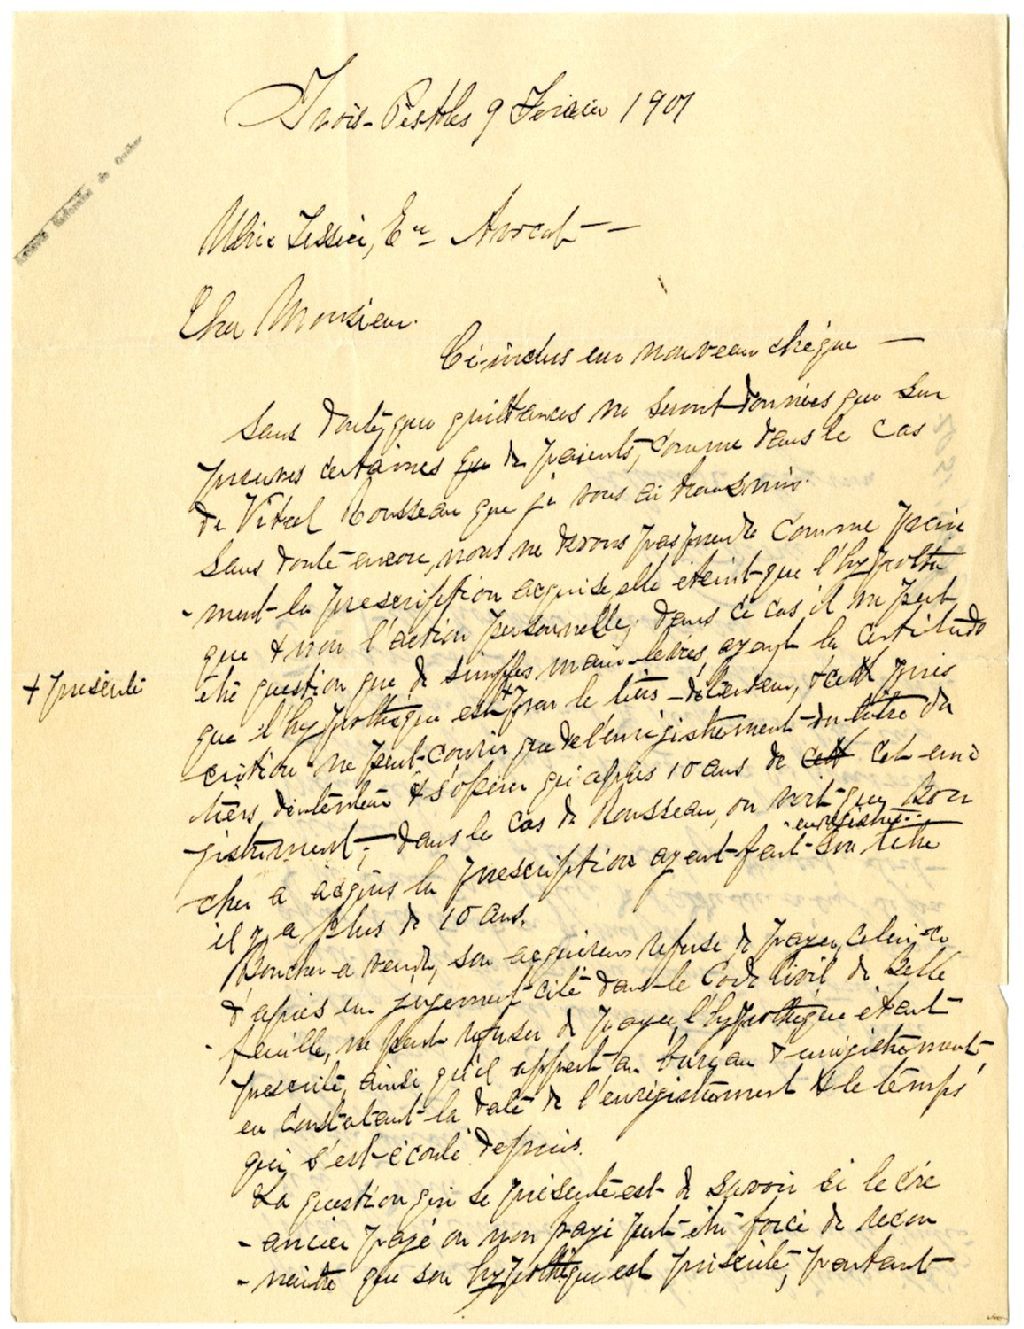 Trois-Pistoles 9 Février 1901
Tessier, Er Avocat —
Cher Monsieur.
Ci-inclus un nouveau chèque —
Sans doute que quittances ne seront données que sur
preuves certaines que de paients, comme dans le cas
de Vital Rousseau que je vous ai transmis.
Sans doute encore, nous ne devons pas prendre comme paie
- ment la prescription acquise, elle éteint que l'hypothè
que & non l'action personnelle, dans ce cas il ne peut
être question que de simples main-levées, ayant la certitude
+ prescrite
que l'hypothèque est + par le tiers-détenteur, cette pres
cription ne peut courir que de l'enregistrement du titre du
tiers détenteur & s'opérer qu'après 10 ans de cett cet enre
gistrement; dans le cas de Rousseau, on voit que Bou
cher a acquis la prescription ayant fait enregistrer son titre
il y a plus de 10 ans.
Boucher a vendu, son acquéreur refuse de payer, celui-ci
d'après un jugement cité dans le Code Civil de Belle
feuille, ne peut refuser de payer, l'hypothèque étant
prescrite, ainsi qu'il appert au bureau d'enregistrement,
en constatant la date de l'enregistrement & le temps
qui s'est écoulé depuis.
La question qui se présente est de savoir si le cré
- ancier payé ou non payé peut être forcé de recon
- naitre que son hypothèque est prescrite, partant